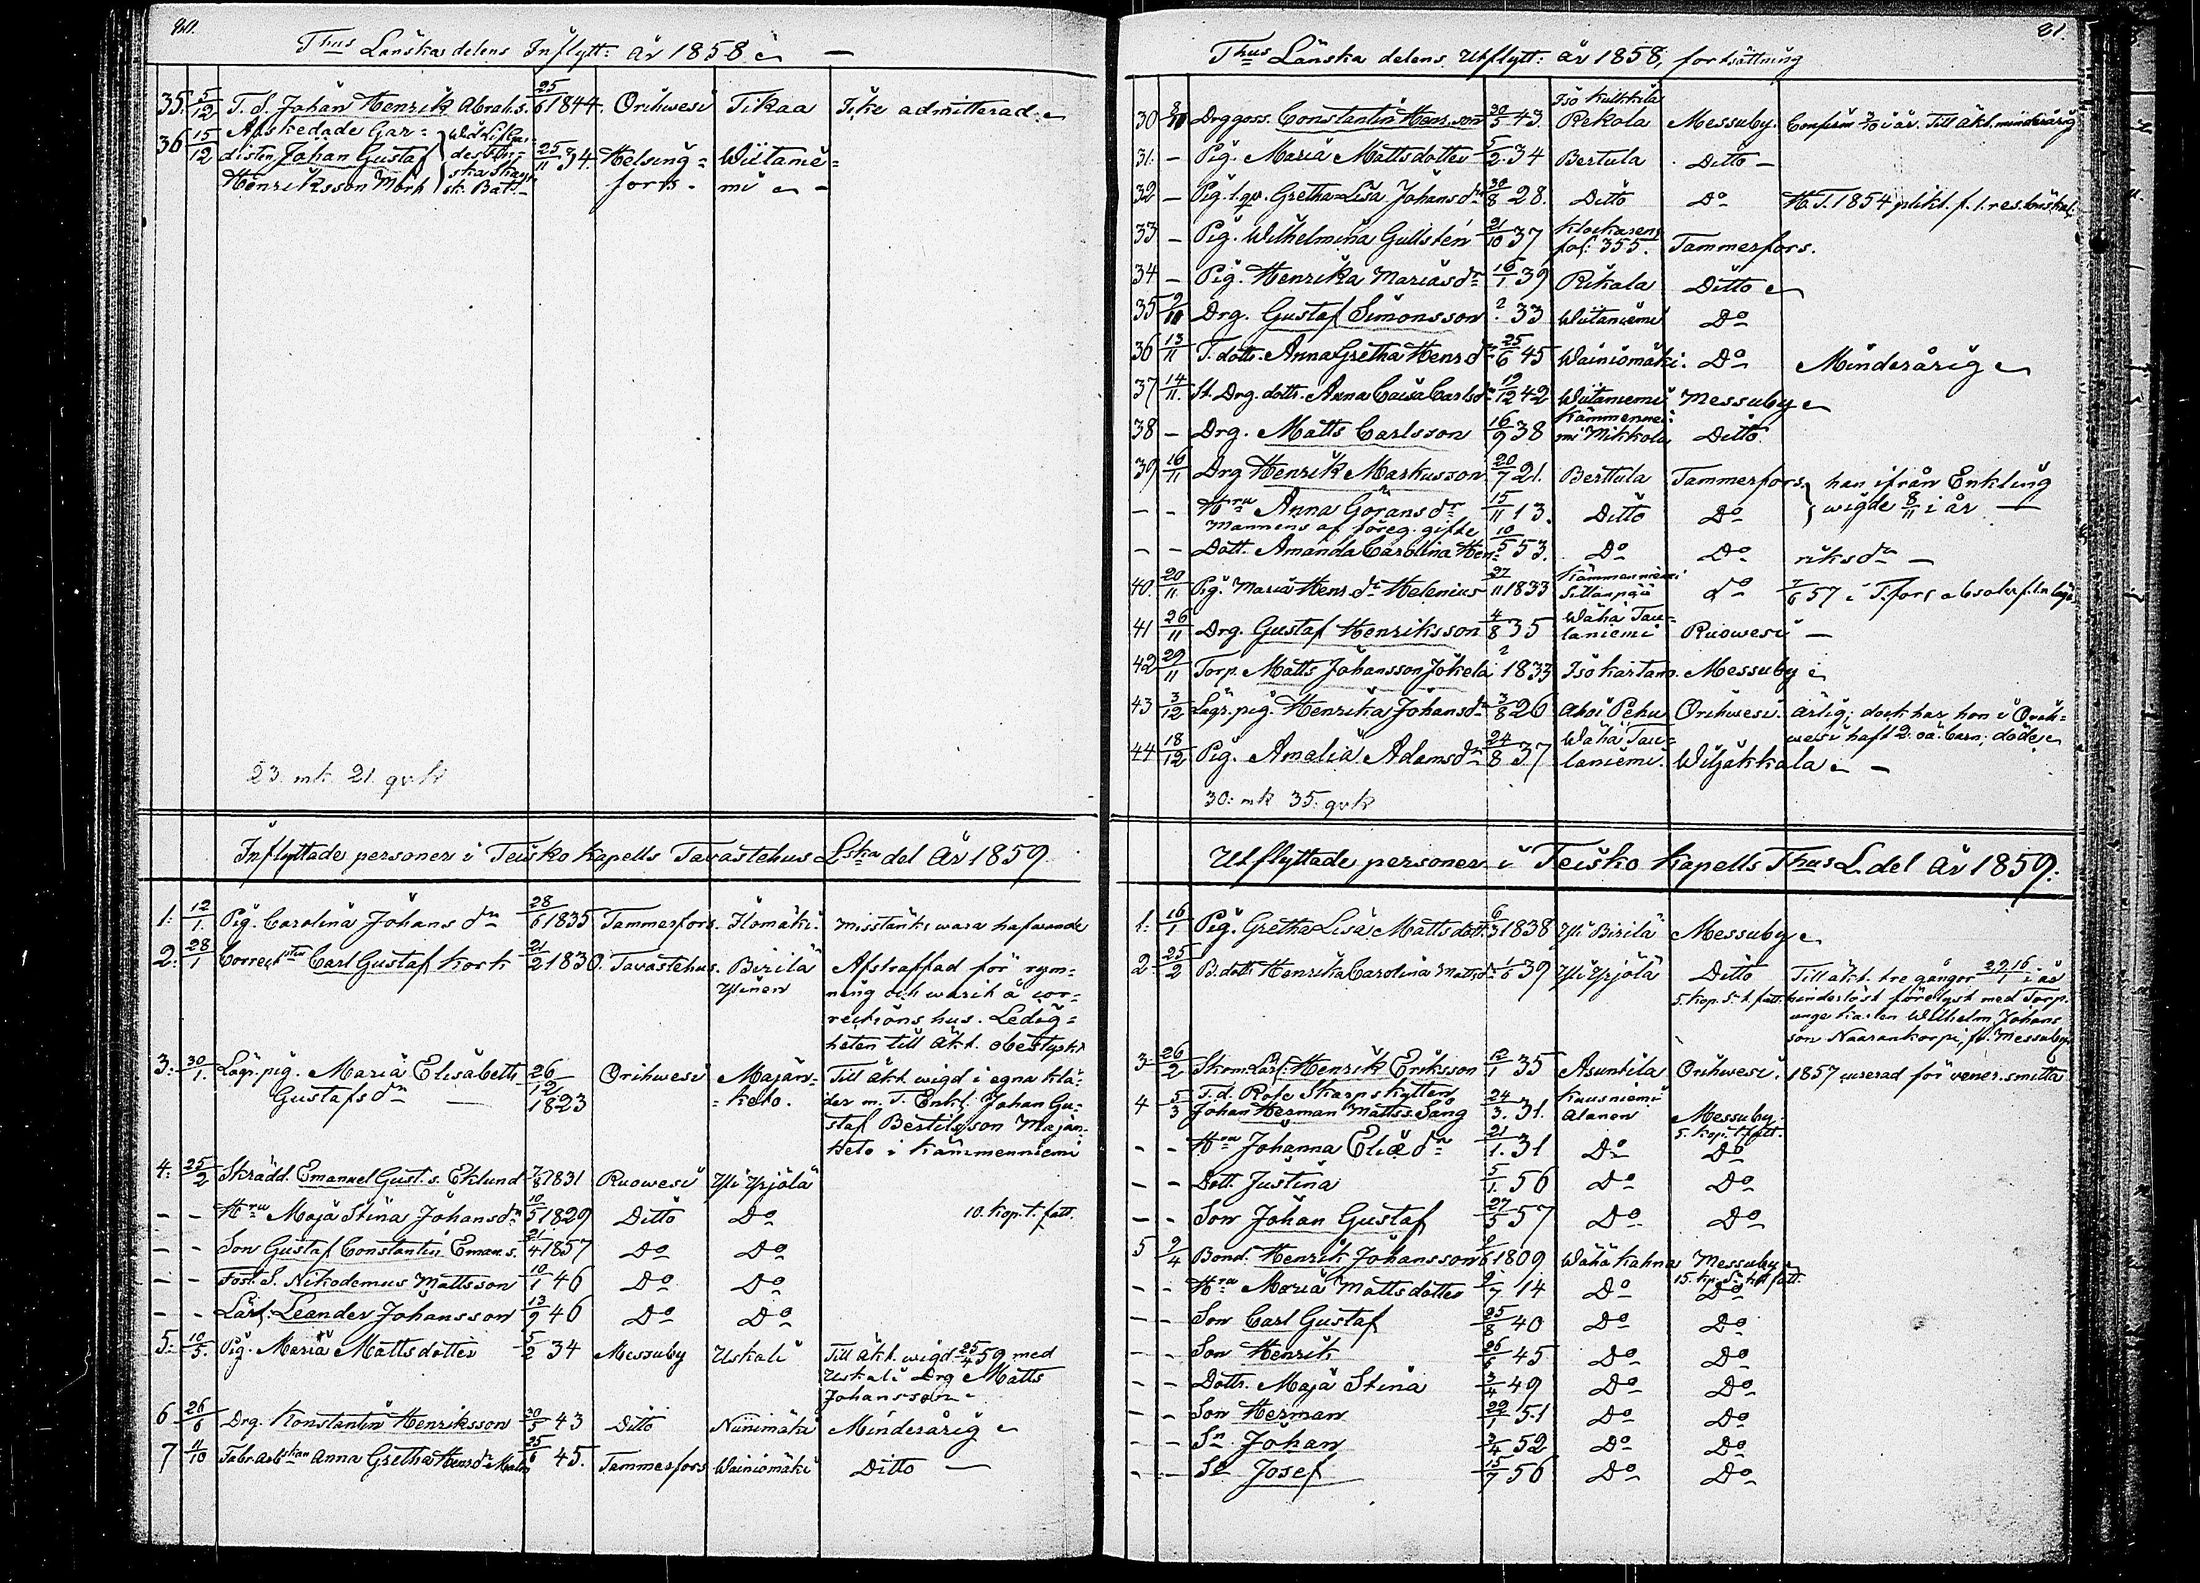 80.
Thus Länska delens Inflytt: år 1858
35. 5/12 T. S. Johan Henrik Abrah.s. 25/6 1844. Orihwesi Tikaa Icke admitterad
36 15/12 Afskedade Gar=
disten Johan Gustaf 25/11 34. Helsing= Wiitanie=
Henriksson Mörk fors. mi
23. mk. 21. qvk
Inflyttade personer i Teisko Kapells Tavastehus Lska del År 1859
1: 12/1. Pig. Carolina Johans dr 28/6 1835 Tammerfors. Ilomäki. misstänks wara hafwande
2: 28/1 Correct Carl Gustaf Kork 21/2 1830. Tavastehus. Birilä Afstraffad för rym=
Ylinen ning och warit å cor=
rections hus. Ledig=
heten till äkt. obestyrkt
3: 30/1. Lägr. pig. Maria Elisabeth 26/12 1823 Orihwesi Majan= Till äkt wigd i egna klä=
Gustafs dr keto. der m. T. Enkl. Johan Gu=
staf Bertilsson Majan=
keto i Kämmenniemi
4: 25/2 Skrädd. Emanuel Gust. s. Eklund 7/8 1831 Ruowesi Yli Yrjölä
- - Hru Maja Stina Johansdr 10/5 1829 Ditto Do 10. kop. t. fatt.
- - Son Gustaf Constantin Eman. s. 21/4 1857 Do Do
- - Fost. S. Nikodemus Mattsson 10/1 46 Do Do
- - Lärl. Leander Johansson 13/9 46 Do Do
5: 10/5. Pig. Maria Mattsdotter 5/2 34 Messuby Uskali Till äkt. wigd 25/4 59 med
Uskali Drg Matts
Johansson
6 26/6 Drg. Konstantin Henriksson 30/5 43 Ditto Niinimäki Minderårig
7 11/10 Fabr. Arb Anna Gretha Hensdr 25/6 45. Tammerfors Wainiomäki Ditto
81.
Thus Länska delens Utflytt: år 1858, fortsättning
30 8/10 Drg goss. Constantin Hens. son 30/5 43. Iso Kulkkila
Pekola Messuby. Confirm i år. Till äkt. minderårig
31. - Pig. Maria Mattsdotter 5/2. 34 Bertula Ditto
32 - Pig. Gretha Lisa Johansdr 30/8 28. Ditto Do H. T. 1854 plikt. f. 1. res. lönskal.
33 - Pig. Wilhelmina Gullstén 21/10 37 Klockarens
fol: 355. Tammerfors.
34 - Pig. Henrika Mariasdr 16/1 39 Pikala Ditto
35 9/11 Drg. Gustaf Simonsson ? 33 Wiitaniemi Do
36 13/11 T. dottr. Anna Gretha Hensdr 25/6 45 Wainiomäki. Do Minderårig
37 14/11. St. Drg. dottr. Anna Caisa Carlsdr 19/12 42 Wiitaniemi Messuby
38 - Drg. Matts Carlsson 16/9 38 Kämmennie=
mi Mikkola Ditto
39 16/11 Drg Henrik Markusson 20/7 21. Berttula Tammerfors. han ifrån Enkling
- - Hru Anna Görans dr 15/11 13. Ditto Do wigde 8/11 i år
mannens af föreg. gifte
- - Dott. Amanda Carolina Hen= 10/5 53. Do Do riksdr
40. 20/11. Pig. Maria Hens. dr Helenius 27/11 1833 Kämmenniemi
Sillanpää do
41 26/11 Drg. Gustaf Henriksson 4/8 35 Wähä Tau=
laniemi Ruowesi
42 29/11 Torp. Matts Johansson Jokela ? 1833 Iso kartano. Messuby
43 3/12 Lägr. pig. Henrika Johansdr 3/8 26 Ahoi Peku Orihwesi. ärlig; dock har hon i Orih=
wesi haft 2. oä. barn; döde
44 18/12 Pig. Amalia Adamsdr 24/8 37 Wähä Tau=
laniemi. Wiljakkala
30: mk 35. qvk
Utflyttade personer i Teisko Kapells Thus L. del år 1859:
1: 16/1 Pig. Gretha Lisa Mattsdott. 6/3 1838 Yli Birilä Messuby
2 25/2 B. dottr Henrika Carolina Mattsdr 1/6 39 Yli Yrjölä Ditto Till äkt. tre gånger i år
5. kop. S. t. fatt. hinderlöst förelyst med Torp.
unge karlen Wilhelm Johans
son Naarankorpi, fr. Messuby
3: 26/2 Skom. Lärl: Henrik Eriksson 12/1 35 Asuntila Orihwesi. 1857 curerad för vener. smitta
4 5/3 T. d. Rote Skarpskytten
Johan Herman Matts. s. Sång 24/3. 31. Kausniemi
Alanen Messuby.
5. kop. t fatt.
- - Hru Johanna Eliæ dr 21/1. 31 Do Do
- - Dott. Justina 5/1. 56 Do Do
- - Son Johan Gustaf 27/5 57 Do Do
5 9/4 Bond. Henrik Johansson 1809 Wähä kahna Messuby
15. kp. S. till fatt.
- - Hru Maria Mattsdotter 14 Do Do
- - Son Carl Gustaf 25/8 40 Do Do
- - Son Henrik 26/6 45 Do Do
- - Dottr. Maja Stina 3/4 49 Do Do
- - Son Herman 22/1 51 Do Do
- - Sn Johan 3/4 52 Do Do
- - Sn Josef 15/7 56 Do Do